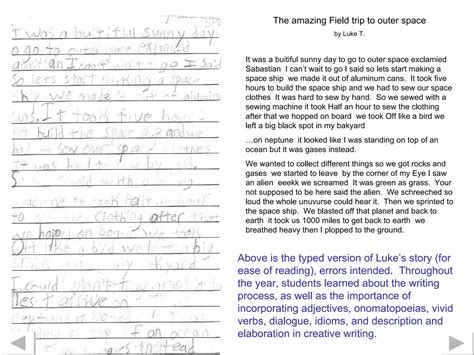 I was a buitiful sunny day
to go to outer space expand
I can't wait to go I said
so lets start making a space
ship we made it out of alumin
cans. It took five hours
to build the space ship and we
had to sew our space
It was hard to sew by
hand
machine it took
to sew the clothing after that
we hopped on board we took
Off like a bird we left a big
black spot in my bakyard
The amazing Field trip to outer space
by Luke T.
It was a buitiful sunny day to go to outer space exclamied
Sabastian I can't wait to go I said so lets start making a
space ship we made it out of aluminum cans. It took five
hours to build the space ship and we had to sew our space
clothes It was hard to sew by hand. So we sewed with a
sewing machine it took Half an hour to sew the clothing
after that we hopped on board we took Off like a bird we
left a big black spot in my bakyard
…on neptune it looked like I was standing on top of an
ocean but it was gases instead.
We wanted to collect different things so we got rocks and
gases we started to leave by the corner of my Eye I saw
an alien eeekk we screamed It was green as grass. Your
not supposed to be here said the alien. We schreeched so
loud the whole unuvurse could hear it. Then we sprinted to
the space ship. We blasted off that planet and back to
earth it took us 1000 miles to get back to earth we
breathed heavy then I plopped to the ground.
Above is the typed version of Luke's story (for
ease of reading), errors intended. Throughout
the year, students learned about the writing
process, as well as the importance of
incorporating adjectives, onomatopoeias, vivid
verbs, dialogue, idioms, and description and
elaboration in creative writing.